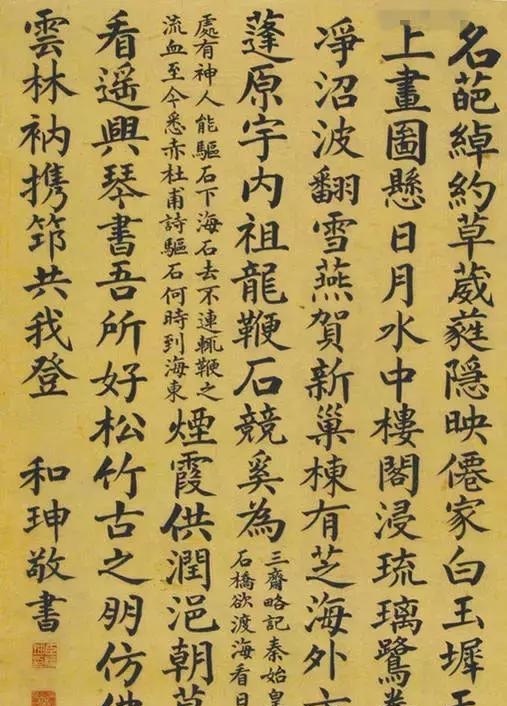 名葩綽約草葳蕤隱映僊家白玉墀
上畫圖懸日月水中樓閣浸琉璃鷺
凈沼波翻雪燕賀新巢棟有芝海外
蓬原宇内祖龍鞭石競奚為
三齊略記秦始皇
石橋欲渡海看日
處有神人能驅石下海石去不速輒鞭之
流血至今悉赤杜甫詩驅石何時到海東
煙霞供潤浥朝
看遥興琴書吾所好松竹古之朋仿
雲林衲携筇共我登
和珅敬書